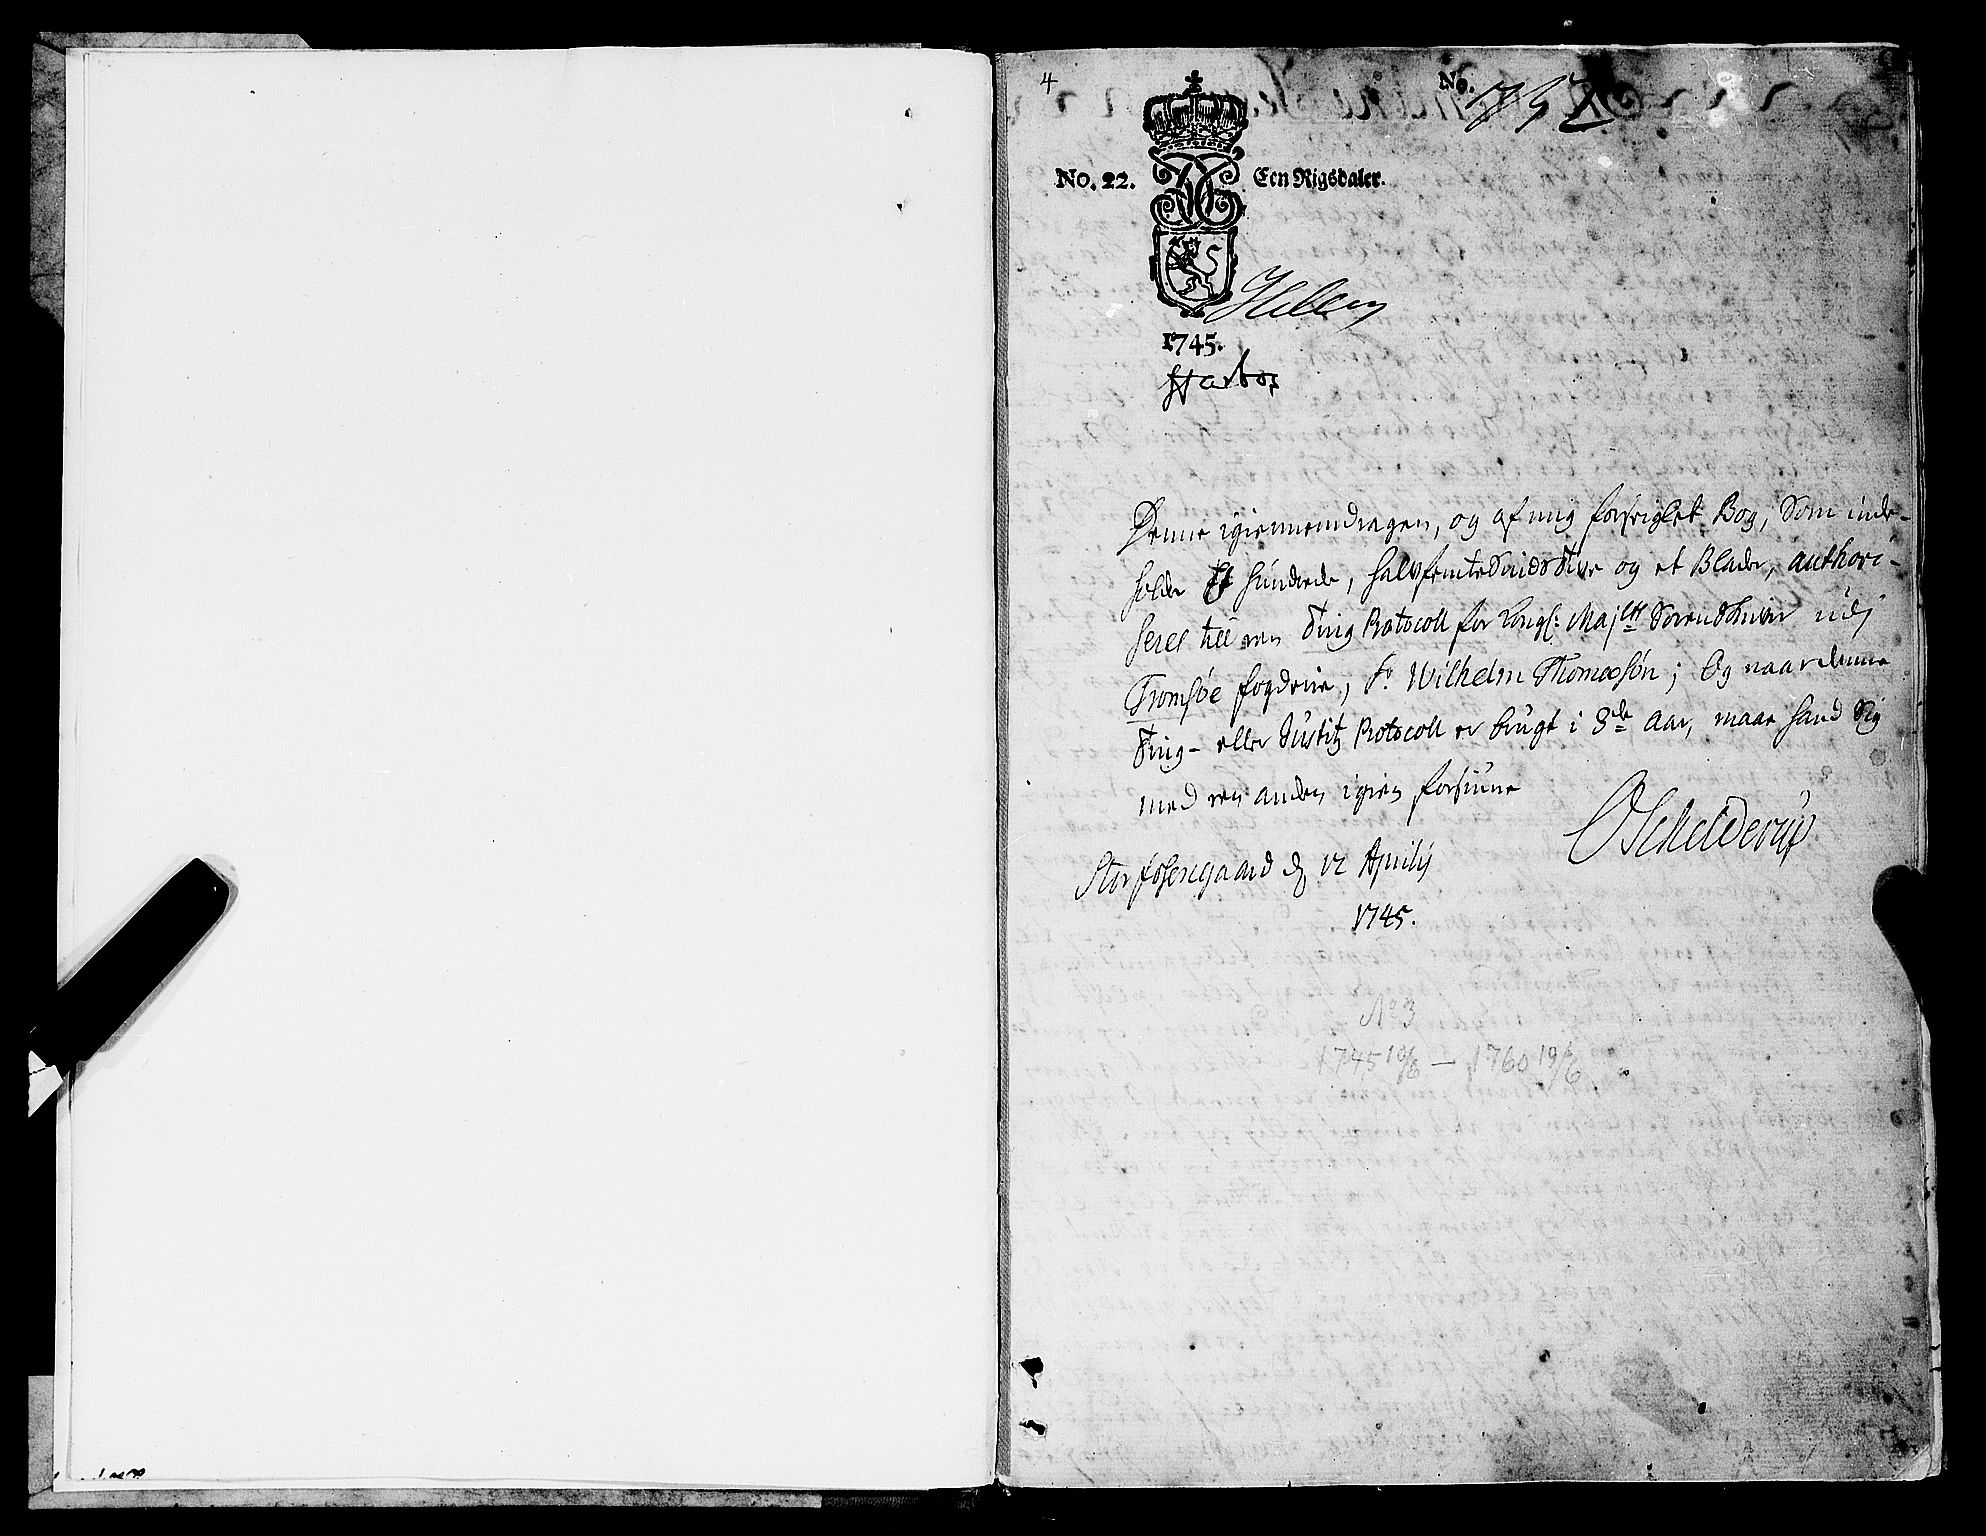 4
No.
No. 22. Een Rigsdaler.
1745.
Denne igiennemdragen, og af mig forseiglet Bog, Som inde-
holder Et hundrede, halvfemtesindstive og et Blader, authori-
seres till een Ting Protocoll for Kongl: Majtts Sorenskriver udj
Tromsøe fogderie, Sr. Wilhelm Thomæsøn; Og naar denne
Ting- eller Justitz Protocoll er brugt i 3de Aar, maae hand Sig
med een anden igien forsiune
OSchelderup
Storfosengaard d. 12 Aprilis
1745.
No 3
1745 10/6 — 1760 19/6